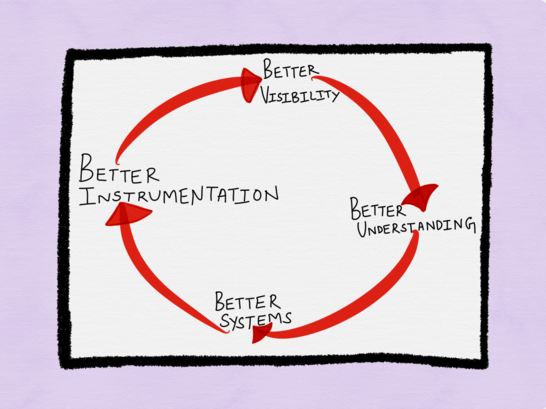 BETTER
VISIBILITY
BETTER
UNDERSTANDING
BETTER
SYSTEMS
BETTER
INSTRUMENTATION